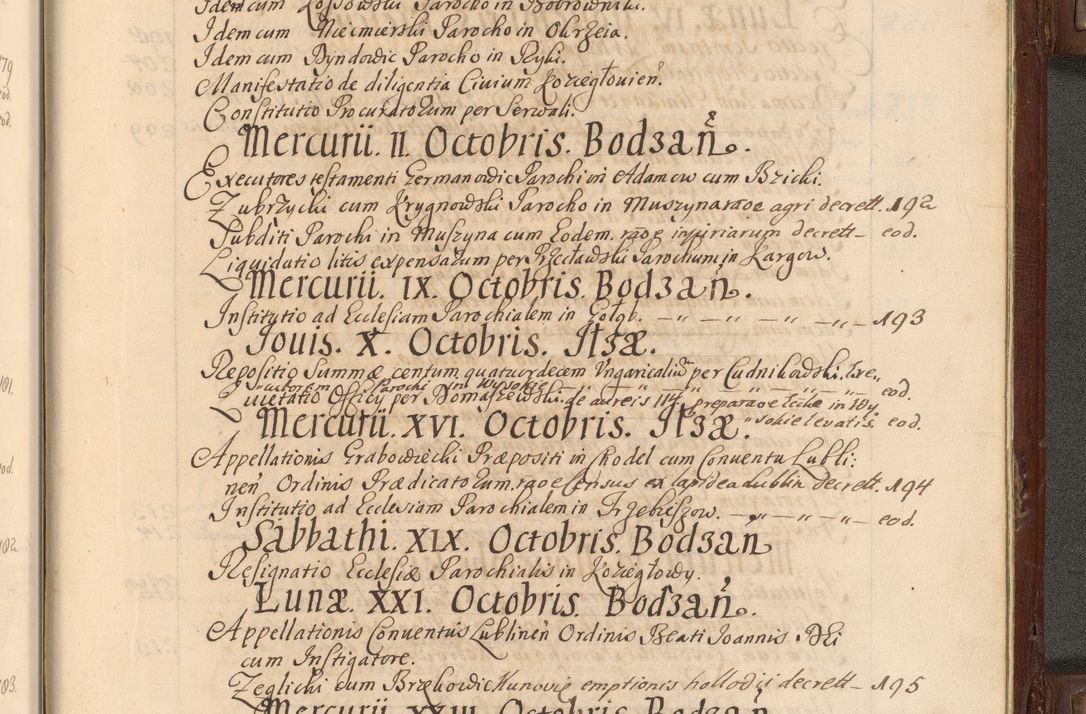 Idem cum Kossowski Parocho in Bobrowniki.
Idem cum Niecmierski Parocho in Okrzeia.
Idem cum Byndowic Parocho in Ryki.
Manifestatio de diligentia Civium Koziegłouien̄.
Constitutio Procuratorum per Serwali.
Mercurii. II. Octobris. Bodzan̄.
Executores testamenti Germanowic Parochi in Adamow cum Bzicki.
Zubrzycki cum Krygnowski Parocho in Muszyna raōe agri decrett. 192
Subditi Parochi in Muszyna cum Eodem. raōe iniuriarum decrett – eod.
Liquidatio litis expensarum per Przecławski Parochum in Kargow.
Mercurii. IX. Octobris. Bodzan̄.
Institutio ad Ecclesiam Parochialem in Gołąb. – „ – „ – „ – „ – 193
Jouis. X. Octobris. Iłzæ.
Repositio Summæ centum quatuordecem Vngaricaliū per Cudnikowski. Exe„
cutorem Parochi in Wysokie – „ – „ – „ – „ – „ – eod.
Quietatio Officij per Domaszewski. de aureis 114 preparaōe Eccliæ in Wy„
„sokie levatis. eod.
Mercurii. XVI. Octobris. Iłzæ.
Appellationis Grabowiecki Præpositi in Chodel cum Conventu Lubli:
nen̄ Ordinis Prædicatorum. raōe Census ex lapidea Lublin decrett. 194
Institutio ad Ecclesiam Parochialem in Trzebieszow. – „ – „ – „ – eod.
Sabbathi. XIX. Octobris. Bodzan̄
Resignatio Ecclesiæ Parochialis in Koziegłowy.
Lunæ. XXI. Octobris. Bodzan̄.
Appellationis Conventus Lublinen̄ Ordinis Beati Joannis Dei
cum Instigatore.
Zeglicki cum Brzękowic Kunovie emptionis hollodii decrett – 195
Mercurii. XXIII. Octobris. Bodzan̄